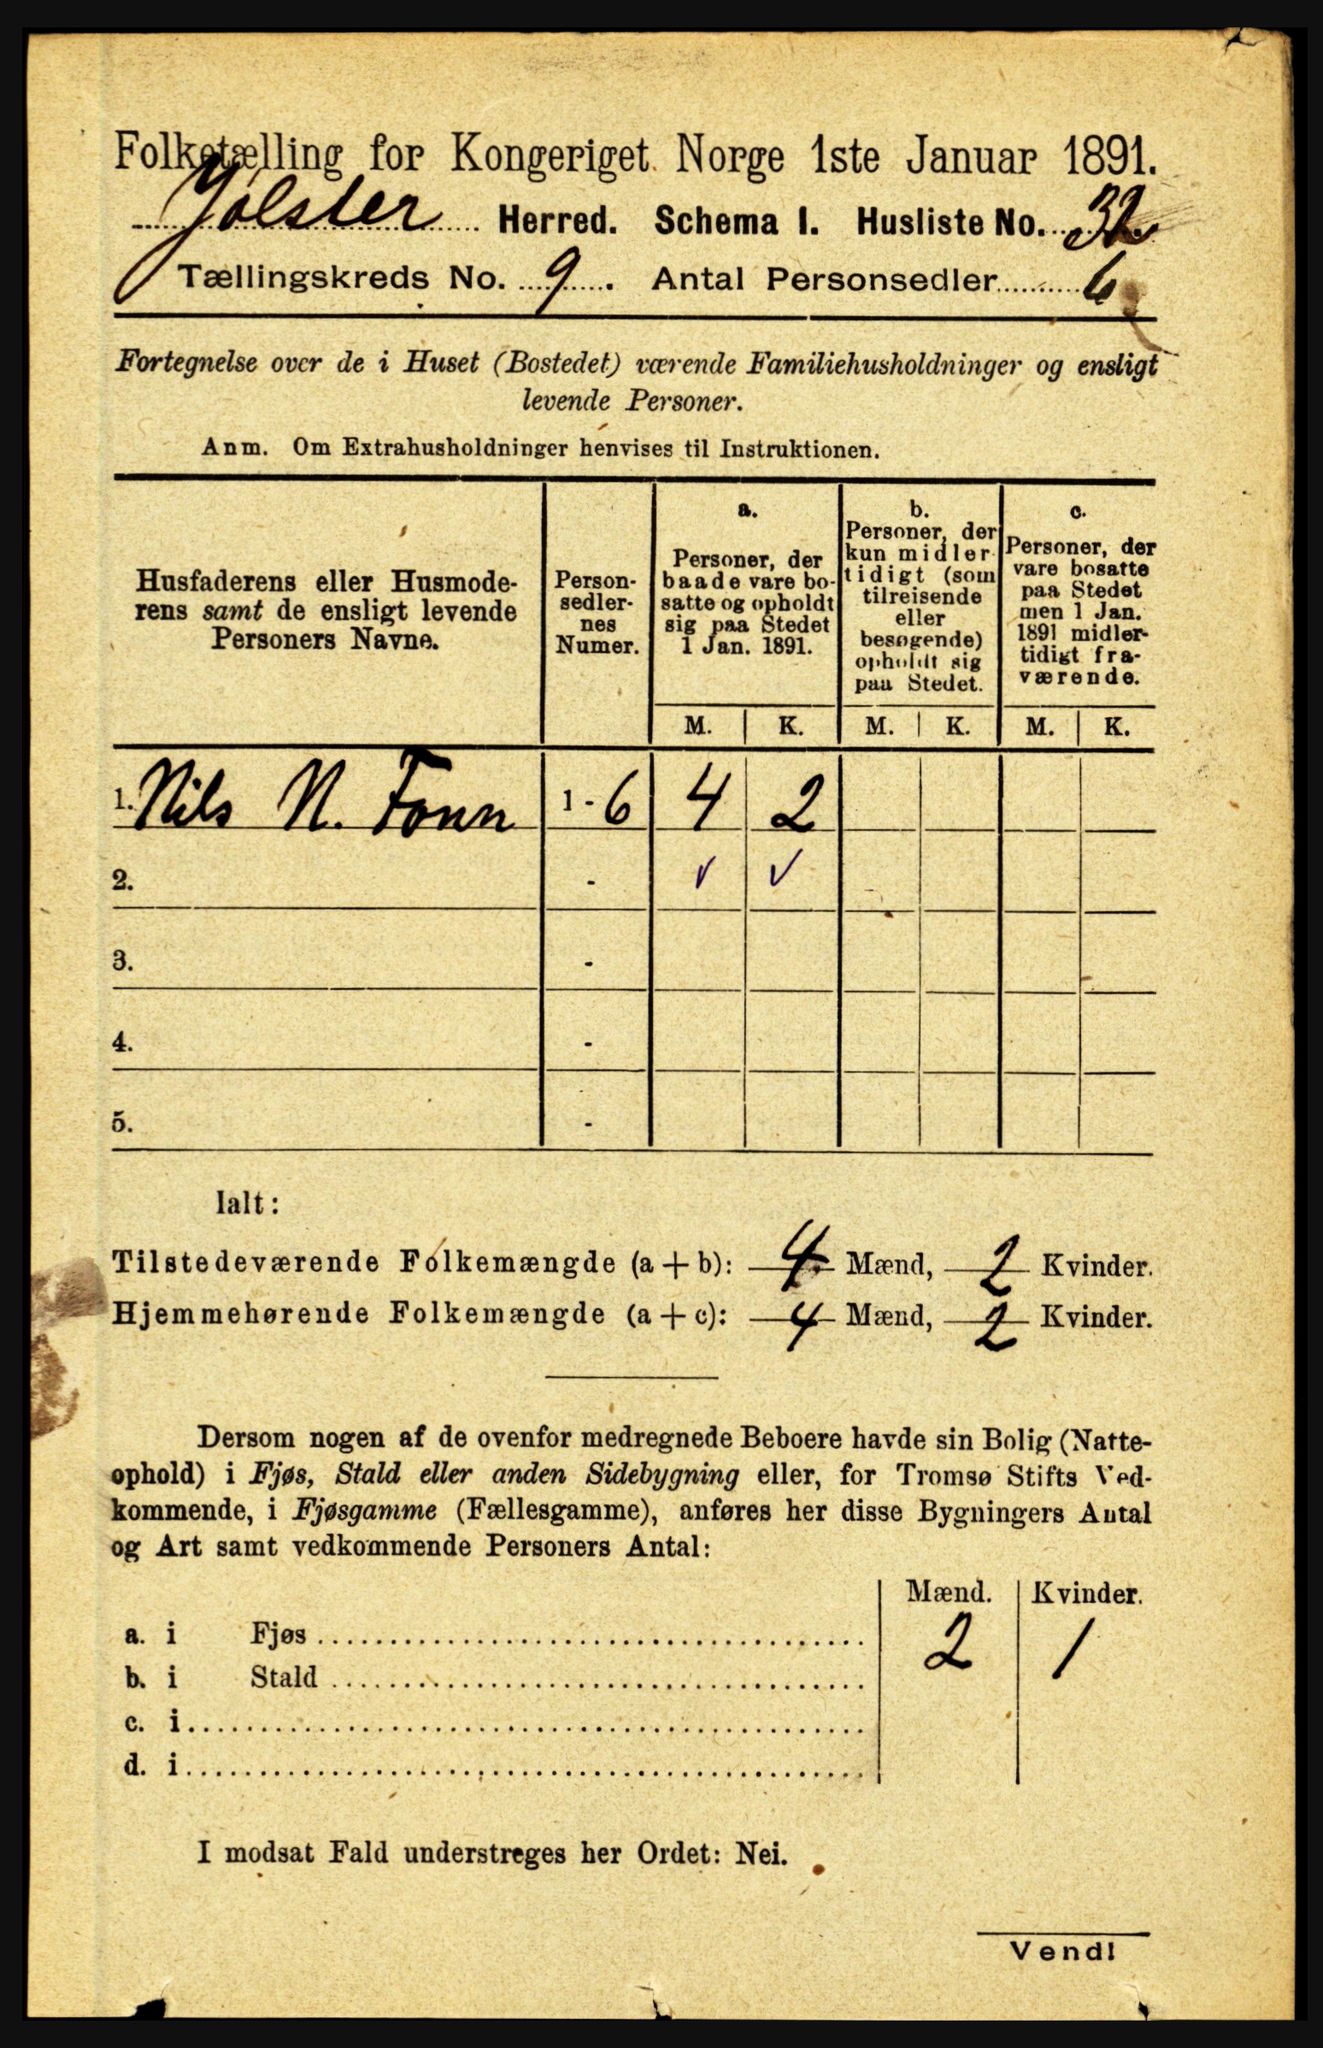 Folketælling for Kongeriget Norge 1ste Januar 1891.
Jølster Herred. Schema I. Husliste No. 32
Tællingskreds No. 9. Antal Personsedler 6
Fortegnelse over de i Huset (Bostedet) værende Familiehusholdninger og ensligt
levende Personer.
Anm. Om Extrahusholdninger henvises til Instruktionen.
Husfaderens eller Husmode-
rens samt de ensligt levende
Personers Navne.
Person-
sedler-
nes
Numer.
a.
Personer, der
baade vare bo-
satte og opholdt
sig paa Stedet
1 Jan. 1891.
b.
Personer, der
kun midler-
tidigt (som
tilreisende
eller
besøgende)
opholdt sig
paa Stedet.
c.
Personer, der
vare bosatte
paa Stedet
men 1 Jan.
1891 midler-
tidigt fra-
værende.
M. K. M. K. M. K.
1. Nils N. Fonn 1 - 6 4 2
2. - ✓ ✓
3. -
4. -
5. -
Ialt:
Tilstedeværende Folkemængde (a + b): 4 Mænd, 2 Kvinder.
Hjemmehørende Folkemængde (a + c): 4 Mænd, 2 Kvinder.
Dersom nogen af de ovenfor medregnede Beboere havde sin Bolig (Natte-
ophold) i Fjøs, Stald eller anden Sidebygning eller, for Tromsø Stifts Ved-
kommende, i Fjøsgamme (Fællesgamme), anføres her disse Bygningers Antal
og Art samt vedkommende Personers Antal:
Mænd. Kvinder.
a. i Fjøs 2 1
b. i Stald
c. i
d. i
I modsat Fald understreges her Ordet: Nei.
Vend!